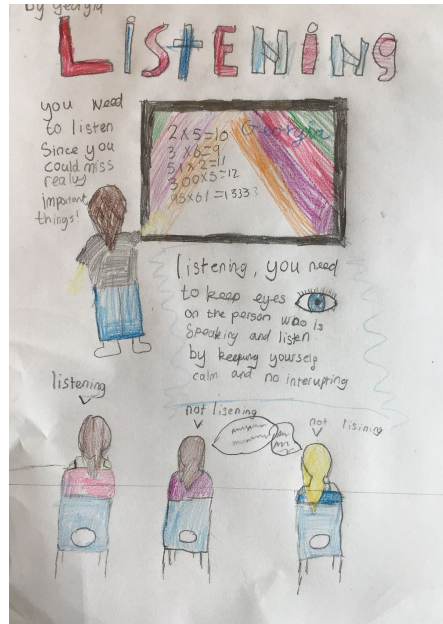 by georgia
LISTENING
you need
to listen
Since you
could miss
really
important
things!
Georgia
2x5=10
3x6=9
51x2=11
300x5=12
95x61=13333
listening, you need
to keep eyes
on the person who is
Speaking and listen
by keeping yourself
calm and no interupting
listening
not lisening
not lisining